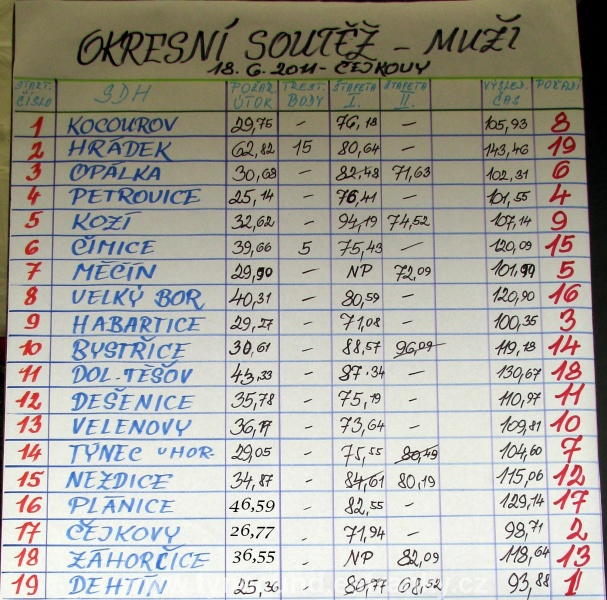 OKRESNÍ SOUTĚŽ - MUŽI
18. 6. 2011 - ČEJKOVY
START. ČÍSLO SDH POŽÁR. ÚTOK TREST. BODY ŠTAFETA I. ŠTAFETA II. VÝSLED. ČAS POŘADÍ
1 KOCOUROV 29,75 - 76,18 - 105,93 8
2 HRÁDEK 62,82 15 80,64 - 143,46 19
3 OPÁLKA 30,68 - 82,48 71,63 102,31 6
4 PETROVICE 25,14 - 76,41 - 101,55 4
5 KOZÍ 32,62 - 94,19 74,52 107,14 9
6 ČÍMICE 39,66 5 75,43 - 120,09 15
7 MĚČÍN 29,90 - NP 72,09 101,99 5
8 VELKÝ BOR 40,31 - 80,59 - 120,90 16
9 HABARTICE 29,27 - 71,08 - 100,35 3
10 BYSTŘICE 30,61 - 88,57 96,09 119,18 14
11 DOL. TĚŠOV 43,33 - 87,34 - 130,67 18
12 DEŠENICE 35,78 - 75,19 - 110,97 11
13 VELENOVY 36,17 - 73,64 - 109,81 10
14 TÝNEC U HOR. 29,05 - 75,55 80,49 104,60 7
15 NEZDICE 34,87 - 84,61 80,19 115,06 12
16 PLÁNICE 46,59 - 82,55 - 129,14 17
17 ČEJKOVY 26,77 - 71,94 - 98,71 2
18 ZÁHORČICE 36,55 - NP 82,09 118,64 13
19 DEHTÍN 25,36 - 80,77 68,52 93,88 1